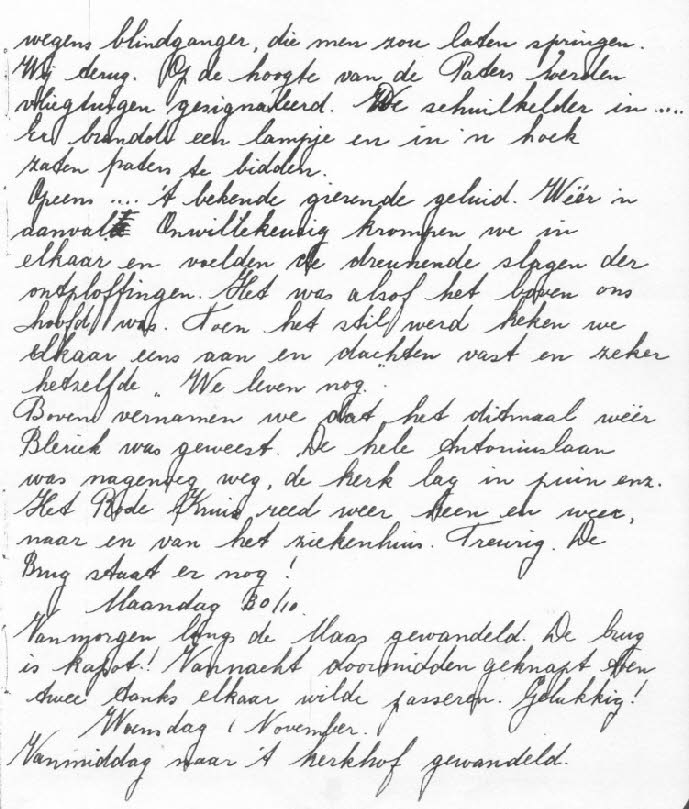 wegens blindganger, die men zou laten springen.
Wij terug. Op de hoogte van de Paters werden
vliegtuigen gesignaleerd. De schuilkelder in ....
Er brandde een lampje en in 'n hoek
zaten paters te bidden.
Opeens .... 't bekende gierende geluid. Wéér 'n
aanval. Onwillekeurig krompen we in
elkaar en voelden de dreunende slagen der
ontploffingen. Het was alsof het boven ons
hoofd was. Toen het stil werd keken we
elkaar eens aan en dachten vast en zeker
hetzelfde „We leven nog.”
Boven vernamen we dat het ditmaal wéér
Blerick was geweest. De hele Antoniuslaan
was nagenoeg weg, de kerk lag in puin enz.
Het Rode Kruis reed weer heen en weer,
naar en van het ziekenhuis. Treurig. De
Brug staat er nog!
Maandag 30/10.
Vanmorgen langs de Maas gewandeld. De brug
is kapot! Vannacht doormidden geknapt toen
twee tanks elkaar wilde passeren. Gelukkig!
Woensdag 1 November.
Vanmiddag naar 't kerkhof gewandeld.